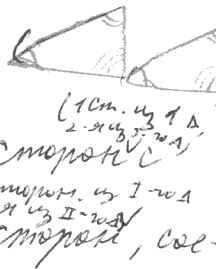 (1 ст. из 1 Δ,
2-я из 2-го Δ)
сторон с
сторон. из I-го Δ
я из II-го Δ
сторон, сое-